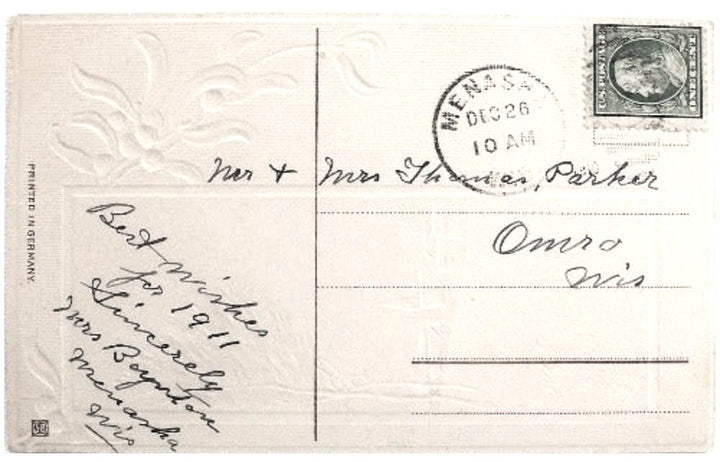 PRINTED IN GERMANY.
Best Wishes
for 1911
Sincerely
Mrs Boynton
Menasha
Wis
MENASA
DEC 26
10 AM
U.S. POSTAGE
ONE CENT
Mr + Mrs Thomas, Parker
Omro
Wis